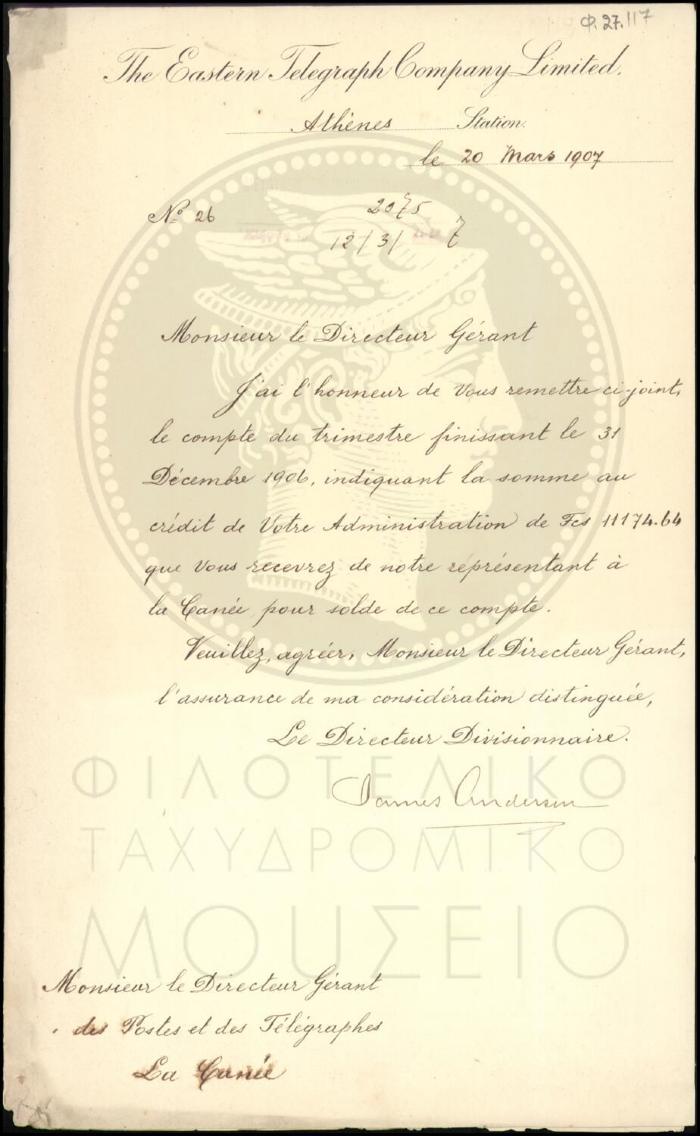 Φ.27.117
The Eastern Telegraph Company, Limited.
Athènes Station.
le 20 Mars 1907
Nº 26
2075
12/3/7
Monsieur le Directeur Gérant
J'ai l'honneur de Vous remettre ci-joint,
le compte du trimestre finissant le 31
Décembre 1906, indiquant la somme au
crédit de Votre Administration de Fcs 11174.64
que Vous recevrez de notre représentant à
la Canée pour solde de ce compte.
Veuillez, agréer, Monsieur le Directeur Gérant,
l'assurance de ma considération distinguée,
Le Directeur Divisionnaire.
James Anderson
ΦΙΛΟΤΕΛΙΚΟ
ΤΑΧΥΔΡΟΜΙΚΟ
ΜΟΥΣΕΙΟ
Monsieur le Directeur Gérant
des Postes et des Télégraphes
La Canée